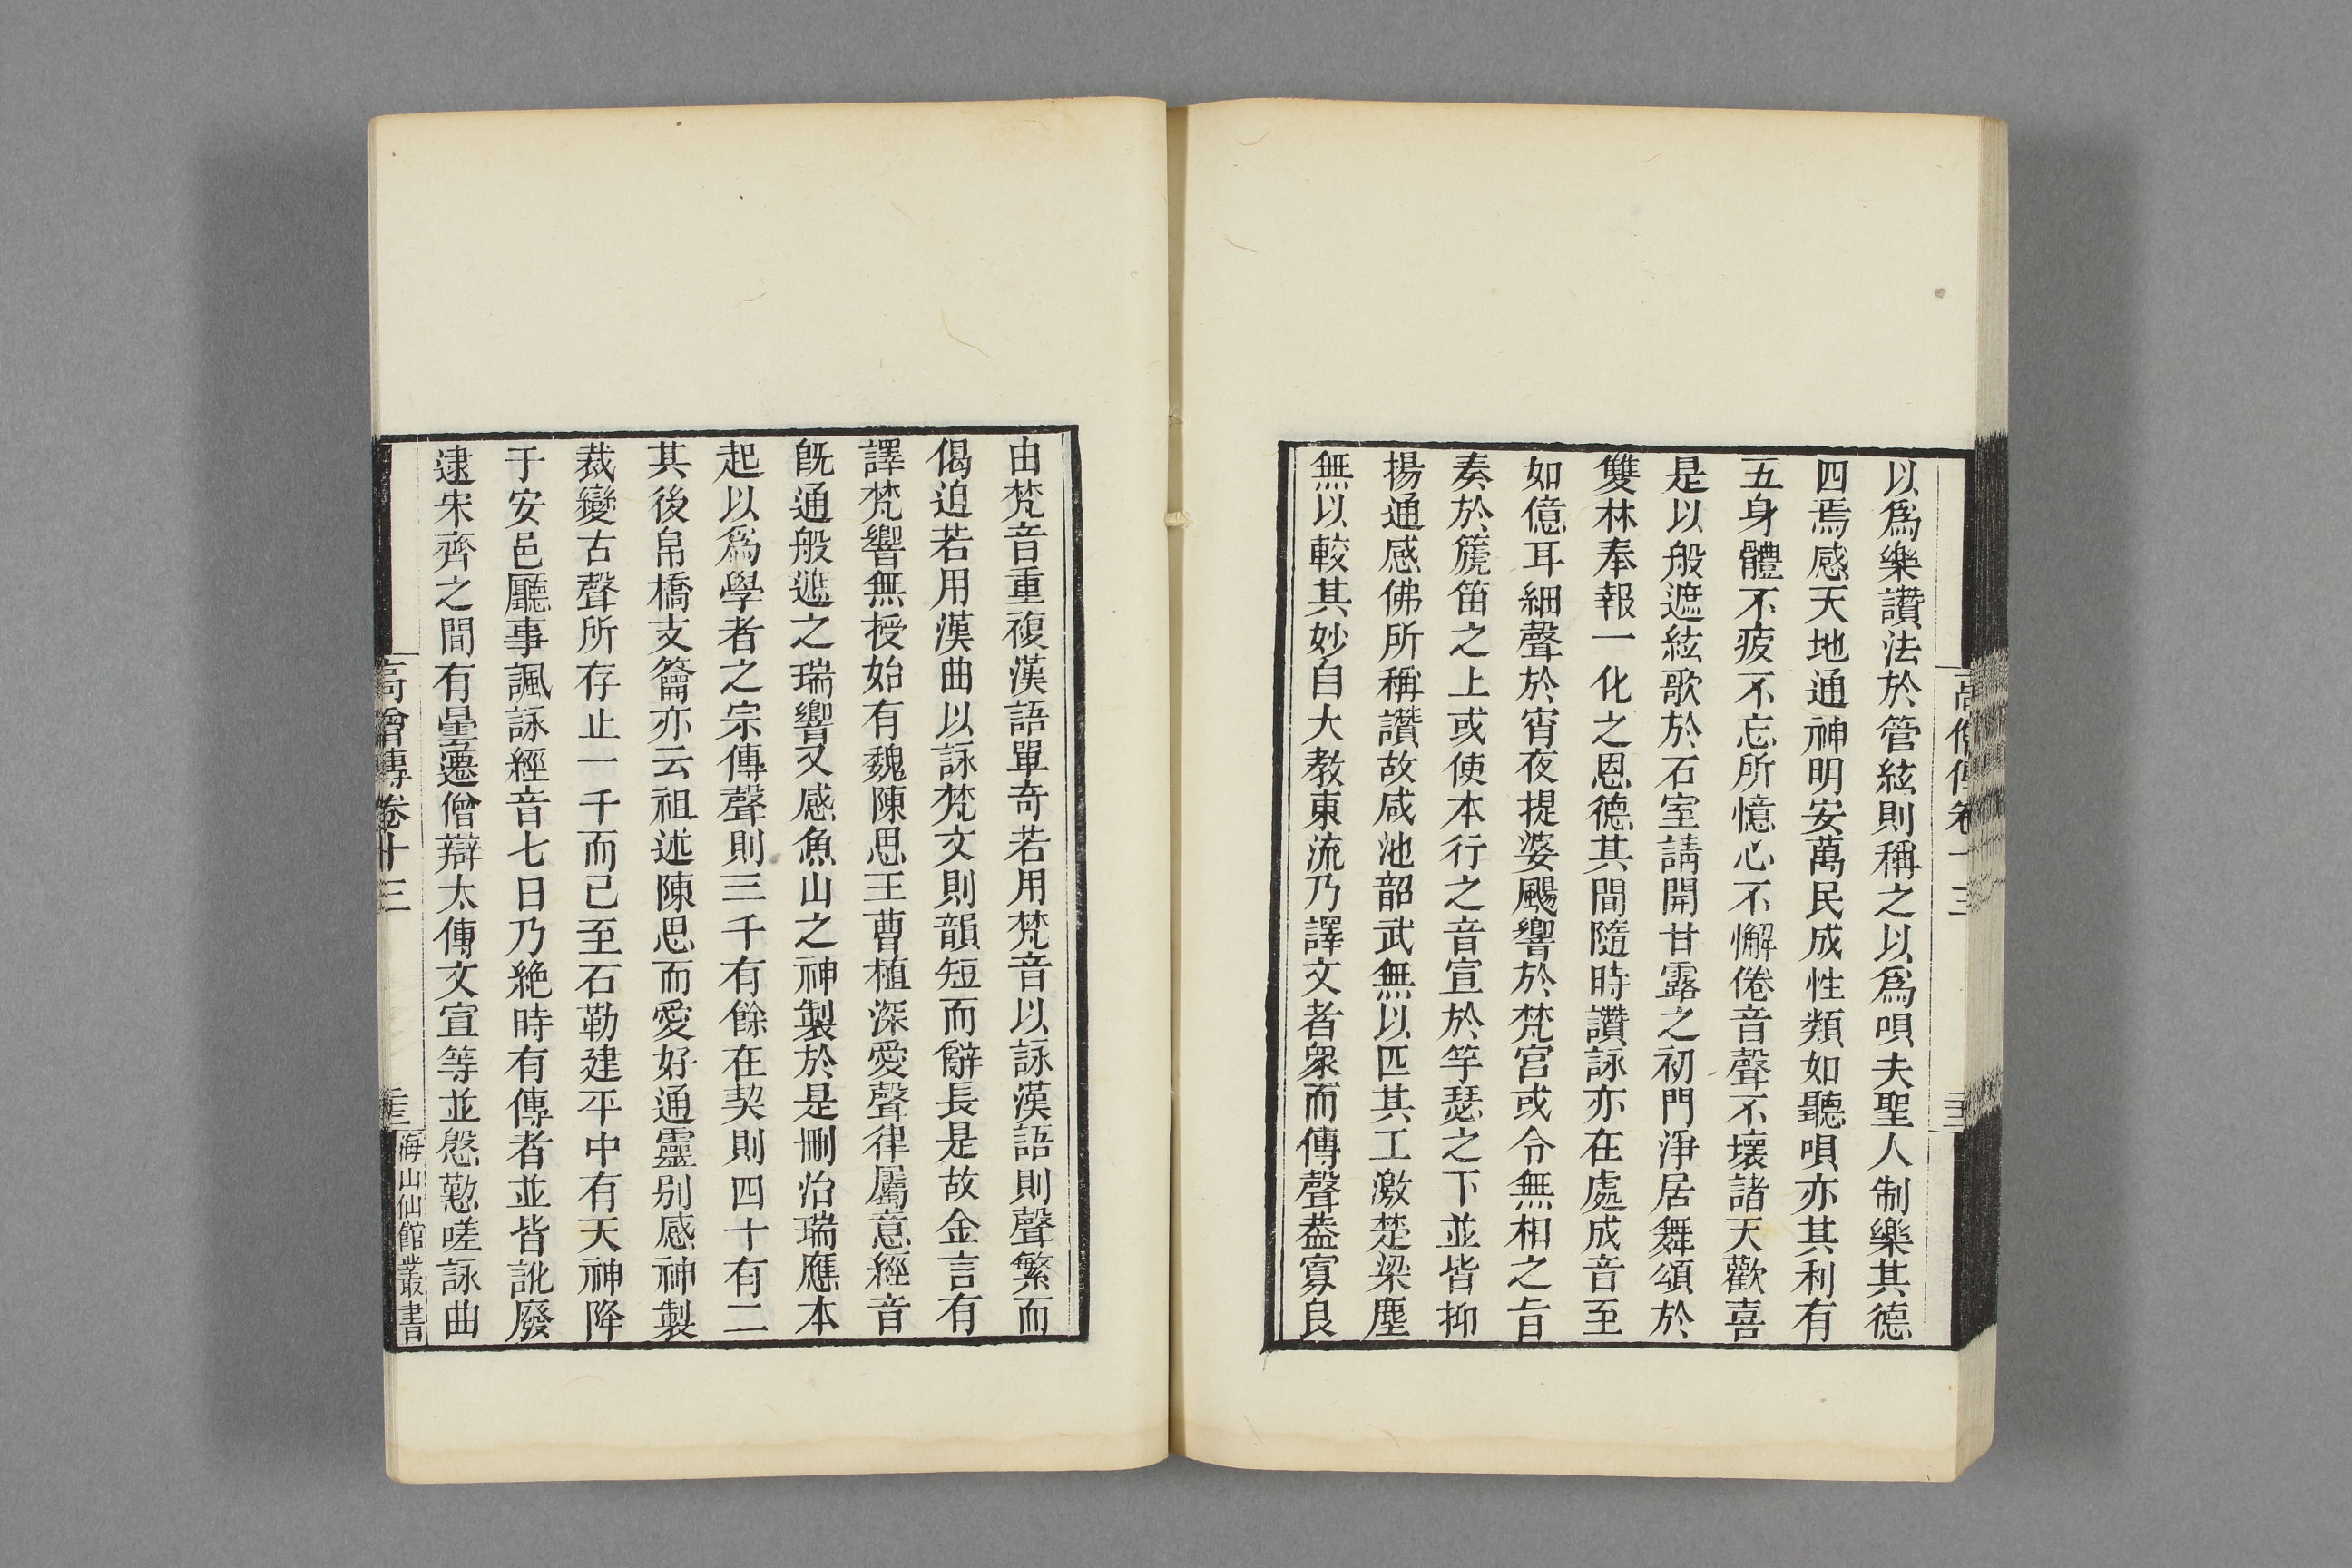 以爲樂讚法於管絃則稱之以爲唄夫聖人制樂其德
四焉感天地通神明安萬民成性類如聽唄亦其利有
五身體不疲不忘所憶心不懈倦音聲不壞諸天歡喜
是以般遮絃歌於石室請開甘露之初門淨居舞頌於
雙林奉報一化之恩德其間隨時讚詠亦在處成音至
如億耳細聲於宵夜提婆颺響於梵宮或令無相之旨
奏於篪笛之上或使本行之音宣於竽瑟之下並皆抑
揚通感佛所稱讚故咸池韶武無以匹其工激楚梁塵
無以較其妙自大教東流乃譯文者衆而傳聲葢寡良
由梵音重複漢語單奇若用梵音以詠漢語則聲繁而
偈迫若用漢曲以詠梵文則韻短而辭長是故金言有
譯梵響無授始有魏陳思王曹植深愛聲律屬意經音
旣通般遮之瑞響又感魚山之神製於是刪治瑞應本
起以爲學者之宗傳聲則三千有餘在契則四十有二
其後帛橋支籥亦云祖述陳思而愛好通靈别感神製
裁變古聲所存止一千而已至石勒建平中有天神降
于安邑廳事諷詠經音七日乃絶時有傳者並皆訛廢
逮宋齊之間有曇遷僧辯太傅文宣等並慇懃嗟詠曲
高僧傳卷十三
海山仙館叢書